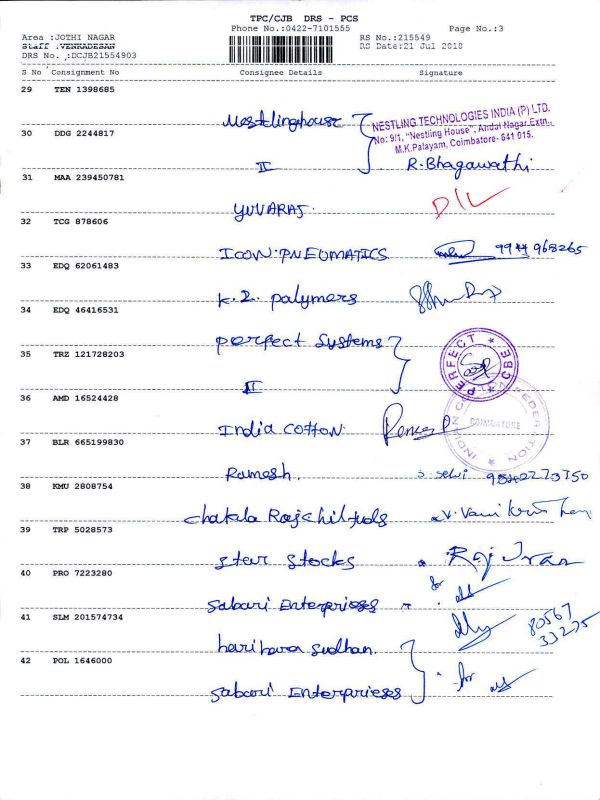 TPC/CJB DRS - PCS
Phone No.:0422-7101555 Page No.:3
Area :JOTHI NAGAR RS No.:215549
Staff :VENKADESAN RS Date:21 Jul 2010
DRS No. :DCJB21554903
S No Consignment No Consignee Details Signature
29 TEN 1398685
Nestlinghouse NESTLING TECHNOLOGIES INDIA (P) LTD.
No: 9/1, "Nestling House", Andal Nagar Extn.,
M.K.Palayam, Coimbatore- 641 015.
30 DDG 2244817
II R.Bhagawathi
31 MAA 239450781
YUVARAJ. D/L
32 TCG 878606
ICON.PNEUMATICS 9944 968265
33 EDQ 62061483
K.2. Polymers
34 EDQ 46416531
perfect Systems
35 TRZ 121728203
II PERFECT CBE
36 AMD 16524428
India COTTON. INDIAN COIMBATORE
37 BLR 665199830
Ramesh. S. Selvi
38 KMU 2808754
39 TRP 5028573
Star Stocks
40 PRO 7223280
Sabari Enterprises for
41 SLM 201574734
harihara Sudhan. 80567
33275
42 POL 1646000
Sabari Enterprises for